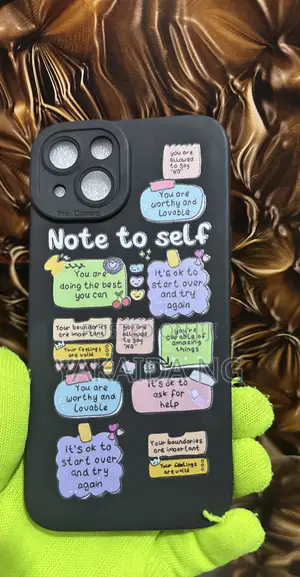 you are
allowed
to say
"NO"
You are
worthy and
lovable
Pro. Camera
Note to self
You are
doing the best
you can
it's ok to
start over
and try
again
Your boundaries
are important
Your feelings
are valid
you are
allowed
to say
"NO"
you're
capable of
amazing
things
You are
worthy and
lovable
it's ok to
ask for
help
it's ok to
start over
and try
again
Your boundaries
are important
Your feelings
are valid